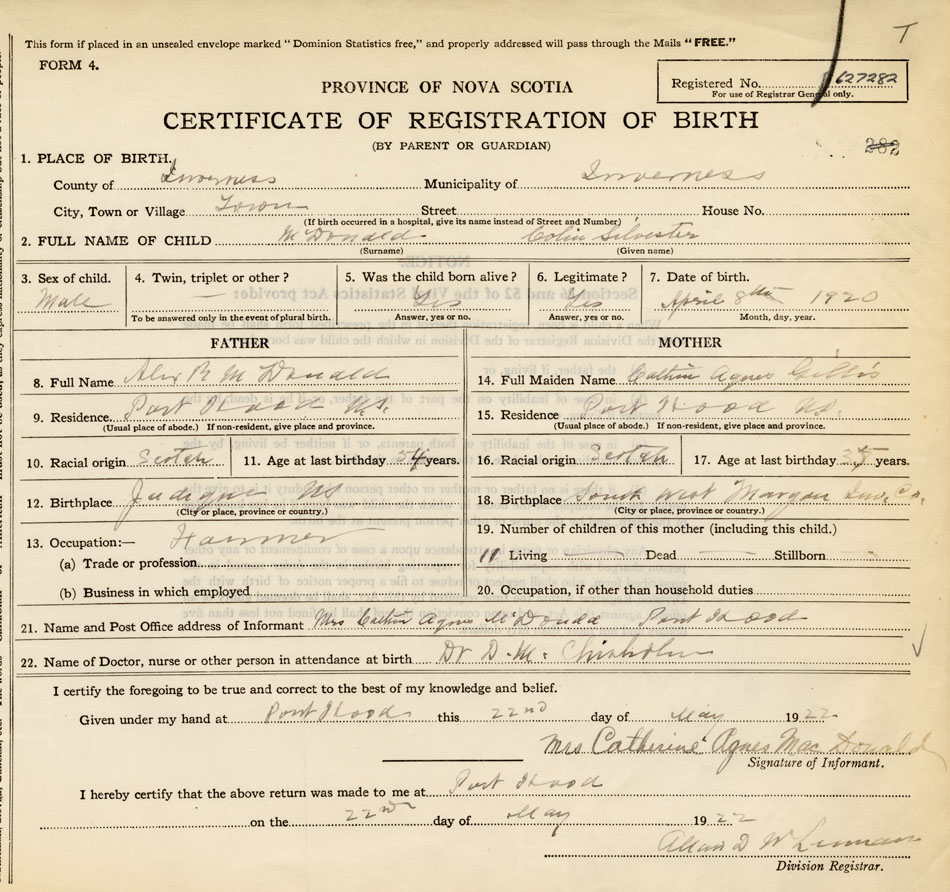 T
This form if placed in an unsealed envelope marked "Dominion Statistics free," and properly addressed will pass through the Mails "FREE."
FORM 4.
Registered No. 627282
For use of Registrar General only.
PROVINCE OF NOVA SCOTIA
CERTIFICATE OF REGISTRATION OF BIRTH
(BY PARENT OR GUARDIAN)
282
1. PLACE OF BIRTH,
County of Inverness Municipality of Inverness
City, Town or Village Town Street House No.
(If birth occurred in a hospital, give its name instead of Street and Number)
2. FULL NAME OF CHILD McDonald Colin Silvester
(Surname) (Given name)
3. Sex of child. 4. Twin, triplet or other? 5. Was the child born alive? 6. Legitimate? 7. Date of birth.
Male — Yes Yes April 8th 1920
To be answered only in the event of plural birth. Answer, yes or no. Answer, yes or no. Month, day, year.
FATHER MOTHER
8. Full Name Alex R McDonald 14. Full Maiden Name Cathrin Agnes Gillis
9. Residence Port Hood N.S. 15. Residence Port Hood NS.
(Usual place of abode.) If non-resident, give place and province. (Usual place of abode.) If non-resident, give place and province.
10. Racial origin Scotch 11. Age at last birthday 54 years. 16. Racial origin Scotch 17. Age at last birthday years.
12. Birthplace Judique NS 18. Birthplace South West Margaree Inv. Co.
(City or place, province or country.) (City or place, province or country.)
13. Occupation:— Farmer 19. Number of children of this mother (including this child.)
(a) Trade or profession 11 Living Dead Stillborn
(b) Business in which employed 20. Occupation, if other than household duties
21. Name and Post Office address of Informant Mrs Cathrin Agnes McDonald Port Hood
22. Name of Doctor, nurse or other person in attendance at birth Dr D. M. Chisholm
I certify the foregoing to be true and correct to the best of my knowledge and belief.
Given under my hand at Port Hood this 22nd day of May 1922
Mrs Catherine Agnes MacDonald
Signature of Informant.
I hereby certify that the above return was made to me at Port Hood
on the 22nd day of May 1922
Allan D
Division Registrar.